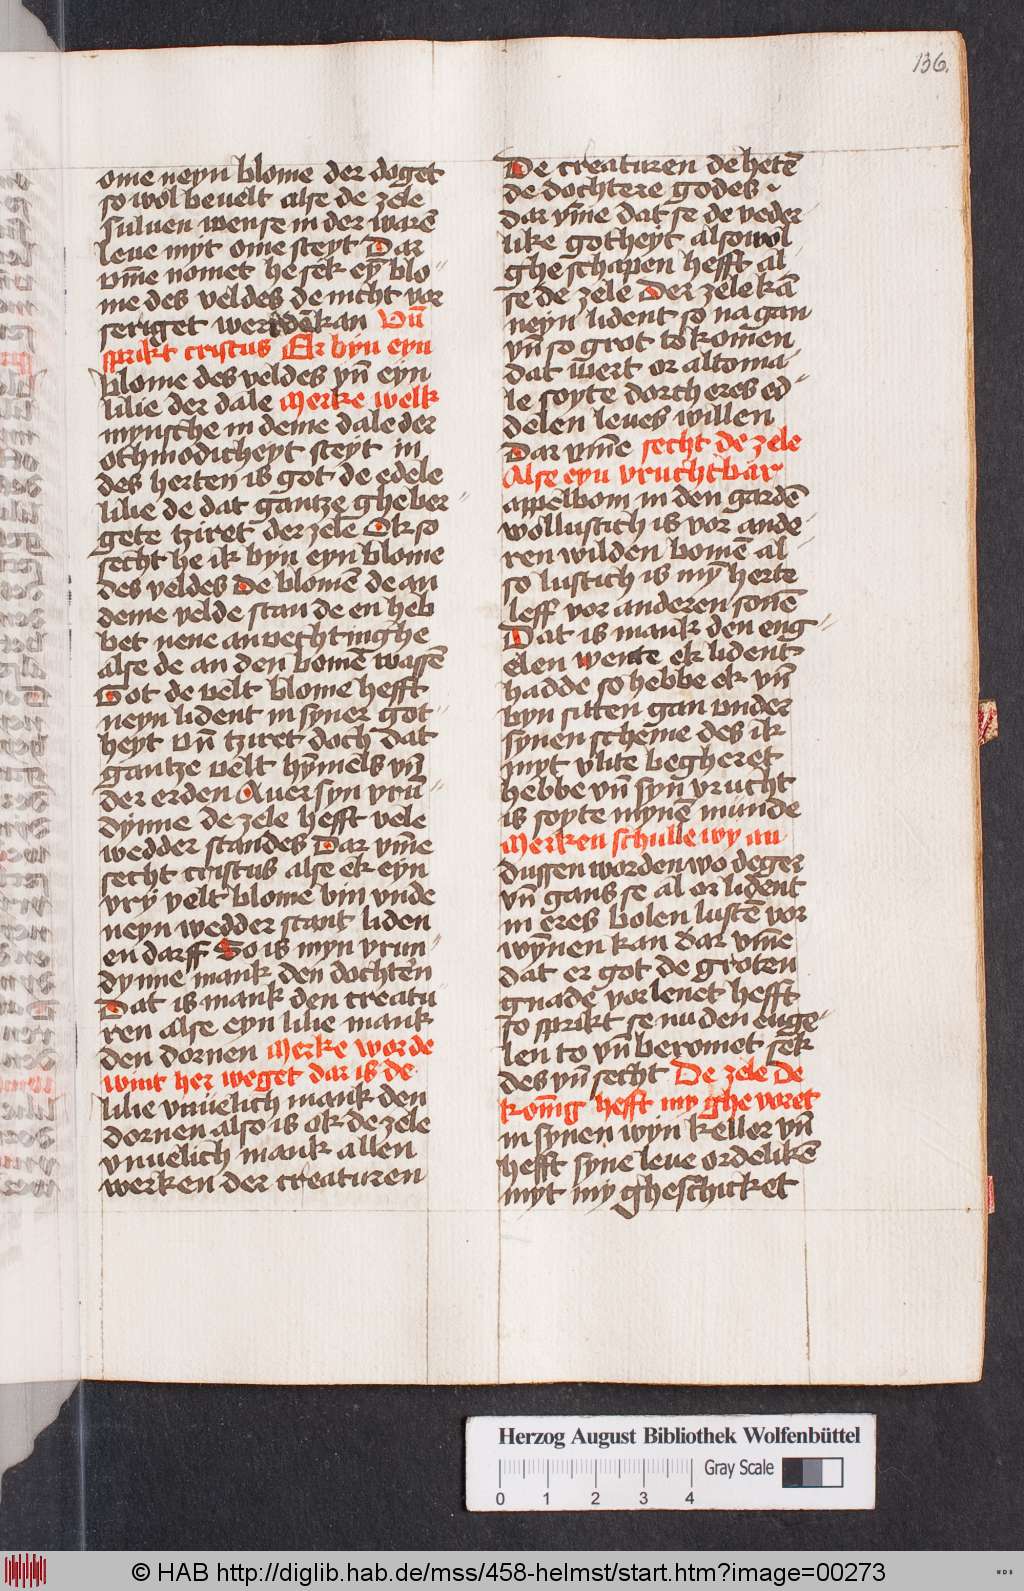 136.
ome neyn blome der doget
so wol beuelt alse de zele
suluen wense in der warē
leue myt ome steyt Dar
vm̄e nomet he sek eȳ blo-
me des veldes de nicht vor
seriget werden kan Vn̄
sprikt cristus Ek byn eyn
blome des veldes yn̄ eyn
lilie der dale Merke welk
mynsche in deme dale der
othmodicheyt steyt in
des herten is got de edele
lilie de dat gantze gheber-
gete tziret der zele Ok so
secht he ik byn eyn blome
des veldes De blomē de an
deme velde stan de en heb
bet nene anuechtinghe
alse de an den bomē wassē
Got de velt blome hefft
neyn lident in syner got-
heyt vn̄ tziret doch dat
gantze velt hȳmels yn̄
der erden Auer syn vrū-
dynne de zele hefft vele
wedder standes Dar vm̄e
secht cristus alse ek eyn
vry velt blome bin vnde
neyn wedder stant liden
en darff So is myn vrun-
dynne mank den dochtern
Dat is mank den creatu
ren alse eyn lilie mank
den dornen Merke wor de
wint her weget dar is de
lilie vnuelich mank den
dornen also is ok de zele
vnuelich mank allen
werken der creaturen
De creaturen de hetē
de dochtere godes
dar vm̄e dat se de veder
like gotheyt also wol
ghe schapen hefft al-
se de zele Der zele kā
neyn lident so na gan
yn̄ so grot to komen
dat wert or altoma-
le soyte dorch eres ed-
delen leues willen
Dar vm̄e secht de zele
Alse eyn vruchtbar
appelbom in den gardē
wollustich is vor ande-
ren wilden bomē al-
so lustich is mȳ herte
leff vor anderen sonē
Dat is mank den eng-
elen wente ek lident
hadde so hebbe ek yn̄
byn sitten gan vnder
synen scheme des ik
myt vlite begheret
hebbe vn̄ syn vrucht
is soyte mynē munde
Merken schulle wy an
dussen worden wo deger
vn̄ gans se al or lident
in eres bolen lustē vor
wynnen kan dar vm̄e
dat er got de groten
gnade vor lenet hefft
So sprikt se nu den enge-
len to yn̄ beromet sek
des yn̄ secht De zele De
konīg hefft my ghe voret
in synen wyn keller yn̄
hefft syne leue ordelikē
myt my gheschicket
Herzog August Bibliothek Wolfenbüttel
Gray Scale
0 1 2 3 4
© HAB http://diglib.hab.de/mss/458-helmst/start.htm?image=00273